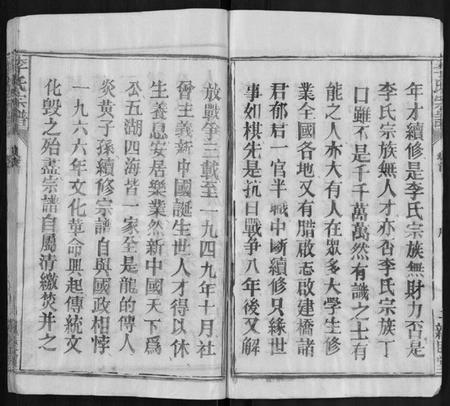 年才續修是李氏宗族無財力否是
李氏宗族無人才亦否李氏宗族丁
口雖不是千千萬萬然有識之士有
能之人亦大有人在眾多大學生修
業全國各地又有腊啟志啟建橋諸
君郁君一官半職中斷續修只緣世
事如棋先是抗日戰爭八年後又解
放戰爭三載至一九四九年十月社
會主義新中國誕生世人才得以休
生養息安居樂業然新中國天下為
公五湖四海皆一家全是龍的傳人
炎黃子孫續修宗譜自與國政相悖
一九六六年文化革命興起傳統文
化毀之殆盡宗譜自屬清繳焚并之
李氏宗譜